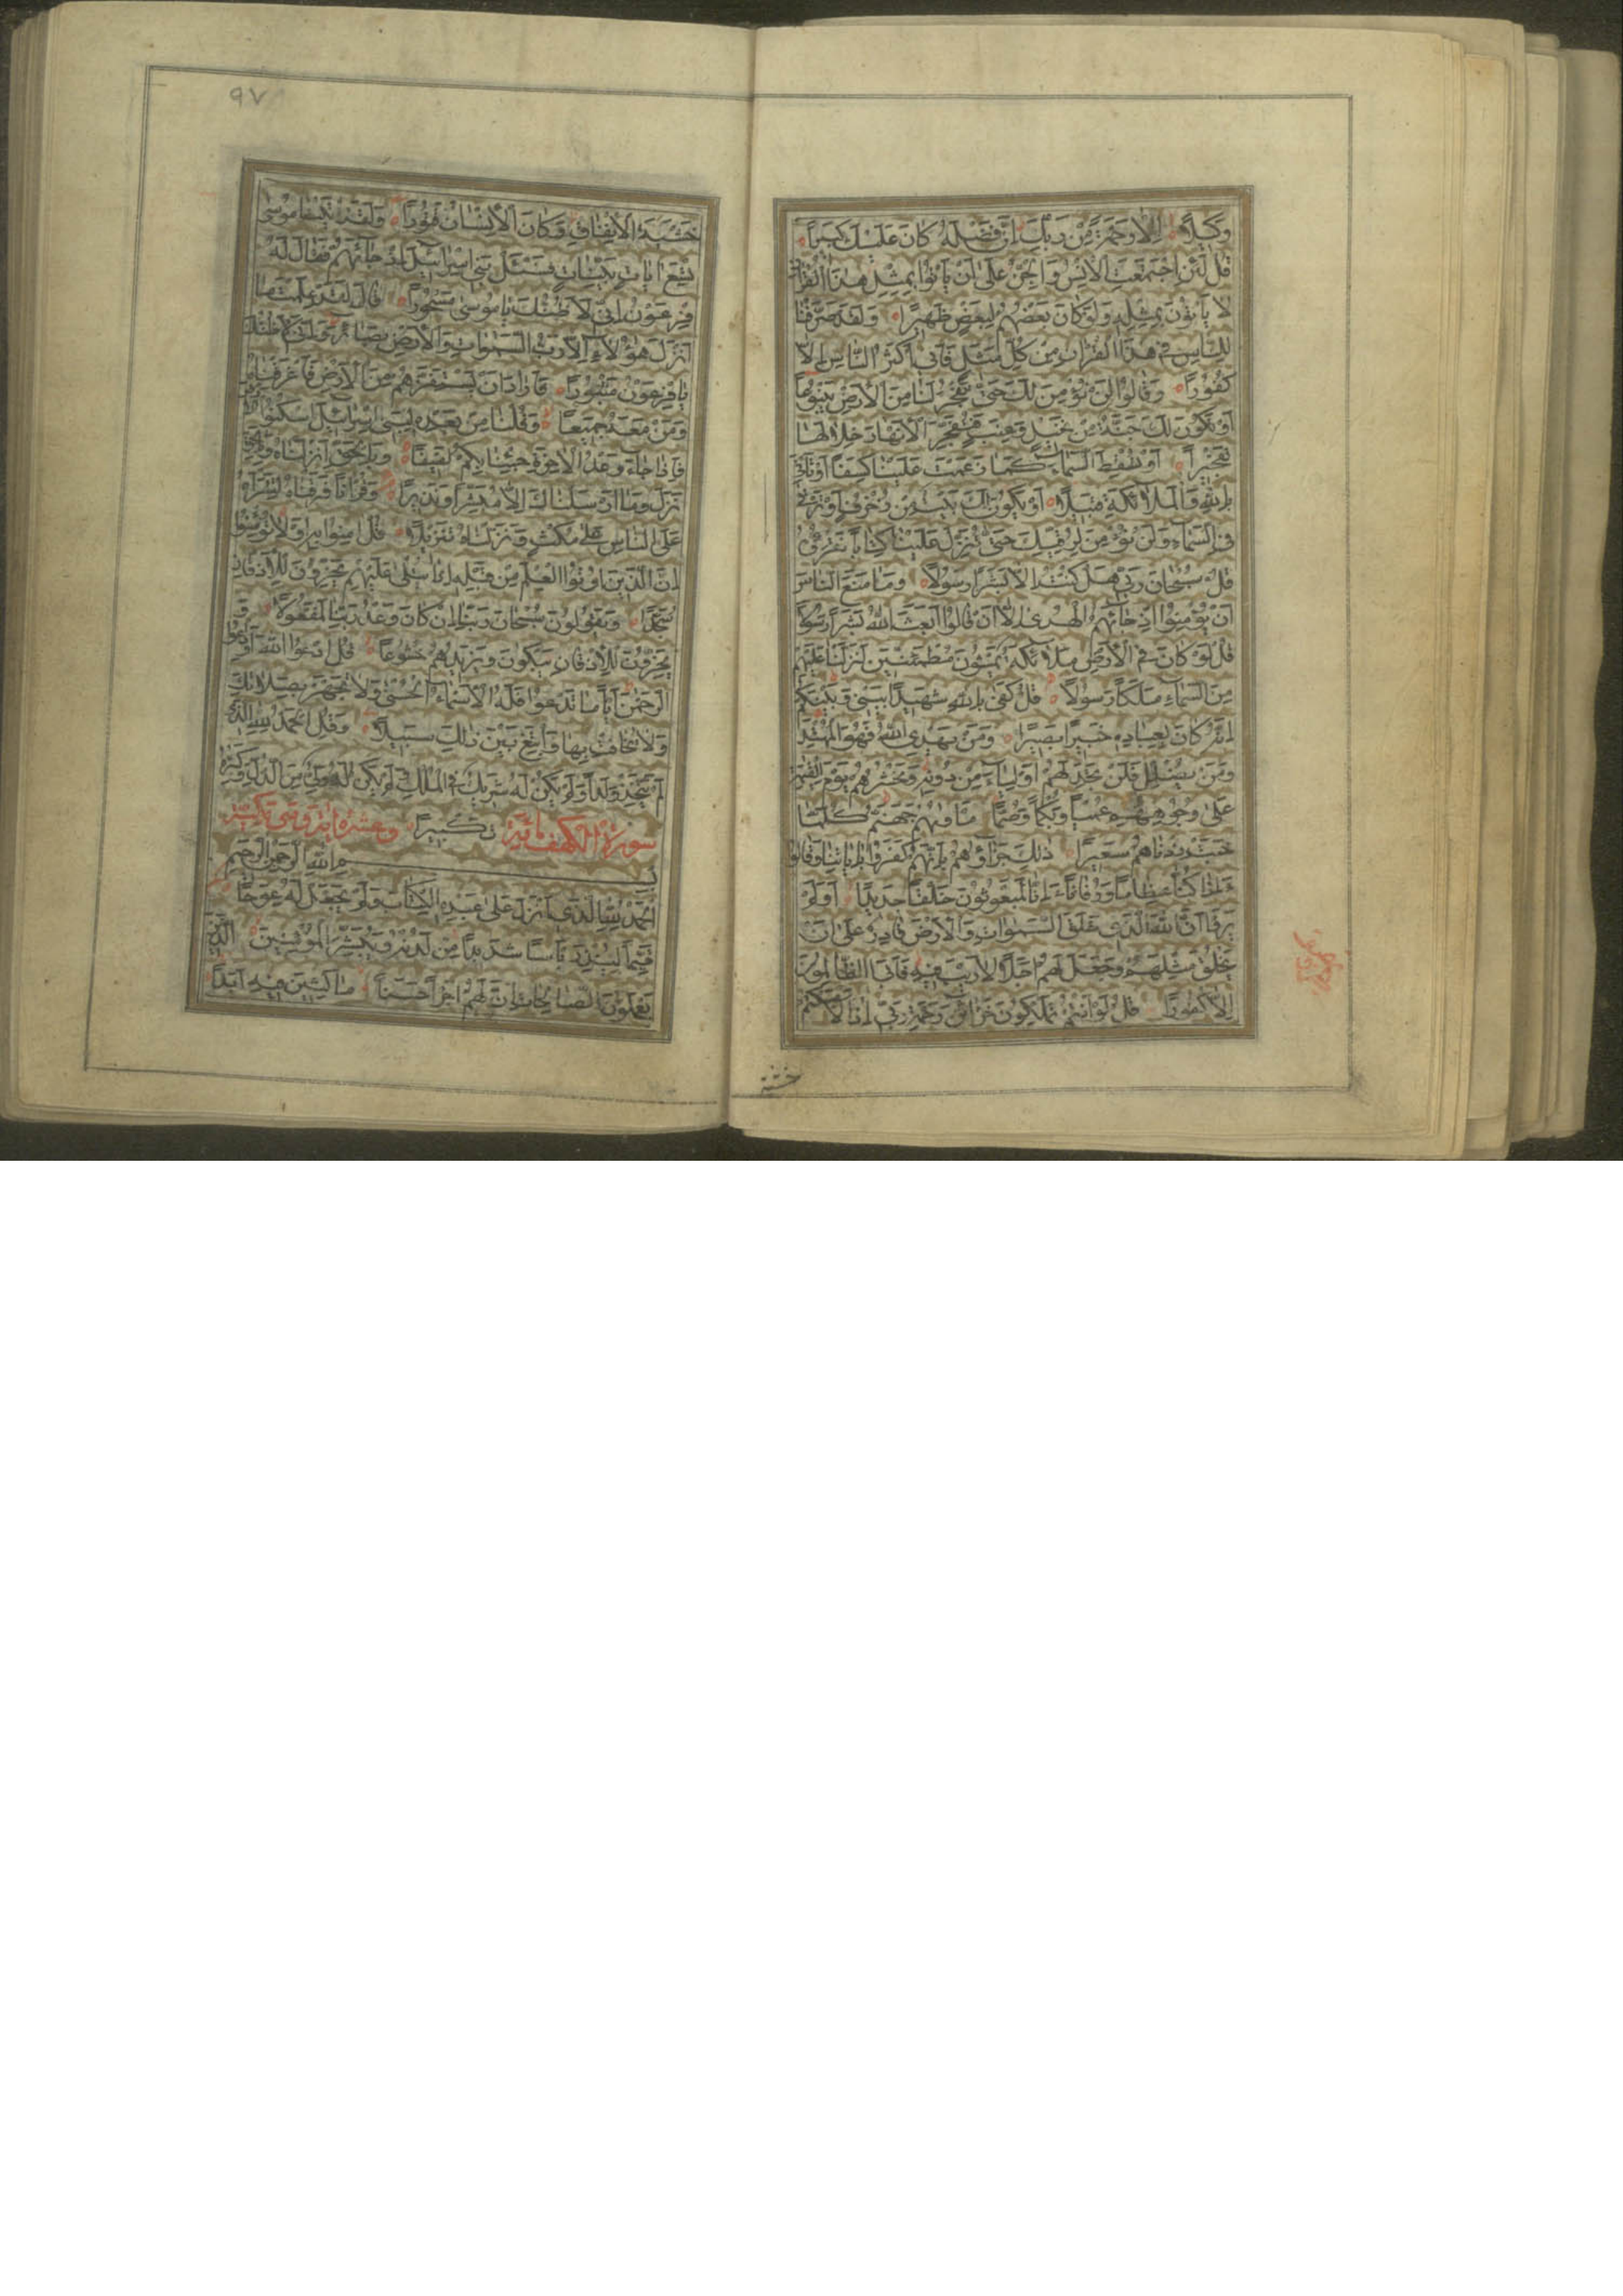 وَكيلاً اِلّا رَحمَةً مِن رَبِّكَ اِنَّ فَضلَهُ كانَ عَلَيكَ كَبيراً
قُل لَئِنِ اجتَمَعَتِ الاِنسُ وَالجِنُّ عَلى اَن يَأتوا بِمِثلِ هذَا القُرانِ
لا يَأتونَ بِمِثلِهِ وَلَو كانَ بَعضُهُم لِبَعضٍ ظَهيراً وَلَقَد صَرَّفنا
لِلنّاسِ في هذَا القُرانِ مِن كُلِّ مَثَلٍ فَاَبى اَكثَرُ النّاسِ اِلّا
كُفوراً وَقالوا لَن نُؤمِنَ لَكَ حَتّى تَفجُرَ لَنا مِنَ الاَرضِ يَنبوعاً
اَو تَكونَ لَكَ جَنَّةٌ مِن نَخيلٍ وَعِنَبٍ فَتُفَجِّرَ الاَنهارَ خِلالَها
تَفجيراً اَو تُسقِطَ السَّماءَ كَما زَعَمتَ عَلَينا كِسَفاً اَو تَأتِيَ
بِاللهِ وَالمَلائِكَةِ قَبيلاً اَو يَكونَ لَكَ بَيتٌ مِن زُخرُفٍ اَو تَرقى
فِي السَّماءِ وَلَن نُؤمِنَ لِرُقِيِّكَ حَتّى تُنَزِّلَ عَلَينا كِتاباً نَقرَؤُهُ
قُل سُبحانَ رَبّي هَل كُنتُ اِلّا بَشَراً رَسولاً وَما مَنَعَ النّاسَ
اَن يُؤمِنوا اِذ جائَهُمُ الهُدى اِلّا اَن قالوا اَبَعَثَ اللهُ بَشَراً رَسولاً
قُل لَو كانَ فِي الاَرضِ مَلائِكَةٌ يَمشونَ مُطمَئِنّينَ لَنَزَّلنا عَلَيهِم
مِنَ السَّماءِ مَلَكاً رَسولاً قُل كَفى بِاللهِ شَهيداً بَيني وَبَينَكُم
اِنَّهُ كانَ بِعِبادِهِ خَبيراً بَصيراً وَمَن يَهدِي اللهُ فَهُوَ المُهتَدِ
وَمَن يُضلِل فَلَن تَجِدَ لَهُم اَولِياءَ مِن دونِهِ وَنَحشُرُهُم يَومَ القِيمَةِ
عَلى وُجوهِهِم عُمياً وَبُكماً وَصُمّاً مَأويهُم جَهَنَّمُ كُلَّما
خَبَت زِدناهُم سَعيراً ذلِكَ جَزاؤُهُم بِاَنَّهُم كَفَروا بِاياتِنا وَقالوا
ءَاِذا كُنّا عِظاماً وَرُفاتاً ءَاِنّا لَمَبعوثونَ خَلقاً جَديداً اَوَلَم
يَرَوا اَنَّ اللهَ الَّذي خَلَقَ السَّمواتِ وَالاَرضَ قادِرٌ عَلى اَن
يَخلُقَ مِثلَهُم وَجَعَلَ لَهُم اَجَلاً لا رَيبَ فيهِ فَاَبَى الظّالِمونَ
اِلّا كُفوراً قُل لَو اَنتُم تَملِكونَ خَزائِنَ رَحمَةِ رَبّي اِذاً لَاَمسَكتُم
خشية
٩٧
خَشيَةَ الاِنفاقِ وَكانَ الاِنسانُ قَتوراً وَلَقَد اتَينا موسى
تِسعَ اياتٍ بَيِّناتٍ فَسئَل بَني اِسرائيلَ اِذ جائَهُم فَقالَ لَهُ
فِرعَونُ اِنّي لَاَظُنُّكَ يا موسى مَسحوراً قالَ لَقَد عَلِمتَ ما
اَنزَلَ هؤُلاءِ اِلّا رَبُّ السَّمواتِ وَالاَرضِ بَصائِرَ وَاِنّي لَاَظُنُّكَ
يا فِرعَونُ مَثبوراً فَاَرادَ اَن يَستَفِزَّهُم مِنَ الاَرضِ فَاَغرَقناهُ
وَمَن مَعَهُ جَميعاً وَقُلنا مِن بَعدِهِ لِبَني اِسرائيلَ اسكُنُوا الاَرضَ
فَاِذا جاءَ وَعدُ الاخِرَةِ جِئنا بِكُم لَفيفاً وَبِالحَقِّ اَنزَلناهُ وَبِالحَقِّ
نَزَلَ وَما اَرسَلناكَ اِلّا مُبَشِّراً وَنَذيراً وَقُراناً فَرَقناهُ لِتَقرَاَهُ
عَلَى النّاسِ عَلى مُكثٍ وَنَزَّلناهُ تَنزيلاً قُل امِنوا بِهِ اَو لا تُؤمِنوا
اِنَّ الَّذينَ اوتُوا العِلمَ مِن قَبلِهِ اِذا يُتلى عَلَيهِم يَخِرّونَ لِلاَذقانِ
سُجَّداً وَيَقولونَ سُبحانَ رَبِّنا اِن كانَ وَعدُ رَبِّنا لَمَفعولاً وَ
يَخِرّونَ لِلاَذقانِ يَبكونَ وَيَزيدُهُم خُشوعاً قُلِ ادعُوا اللهَ اَوِ ادعُوا
الرَّحمنَ اَيّاً ما تَدعوا فَلَهُ الاَسماءُ الحُسنى وَلا تَجهَر بِصَلاتِكَ
وَلا تُخافِت بِها وَابتَغِ بَينَ ذلِكَ سَبيلاً وَقُلِ الحَمدُ لِلّهِ الَّذي
لَم يَتَّخِذ وَلَداً وَلَم يَكُن لَهُ شَريكٌ فِي المُلكِ وَلَم يَكُن لَهُ وَلِيٌّ مِنَ الذُّلِّ وَكَبِّرهُ
سورة الكهف مائة تَكبيراً وعشرة اية وهي مكية
بِسمِ اللهِ الرَّحمنِ الرَّحيمِ
اَلحَمدُ لِلّهِ الَّذي اَنزَلَ عَلى عَبدِهِ الكِتابَ وَلَم يَجعَل لَهُ عِوَجاً
قَيِّماً لِيُنذِرَ بَأساً شَديداً مِن لَدُنهُ وَيُبَشِّرَ المُؤمِنينَ الَّذينَ
يَعمَلونَ الصّالِحاتِ اَنَّ لَهُم اَجراً حَسَناً ماكِثينَ فيهِ اَبَداً